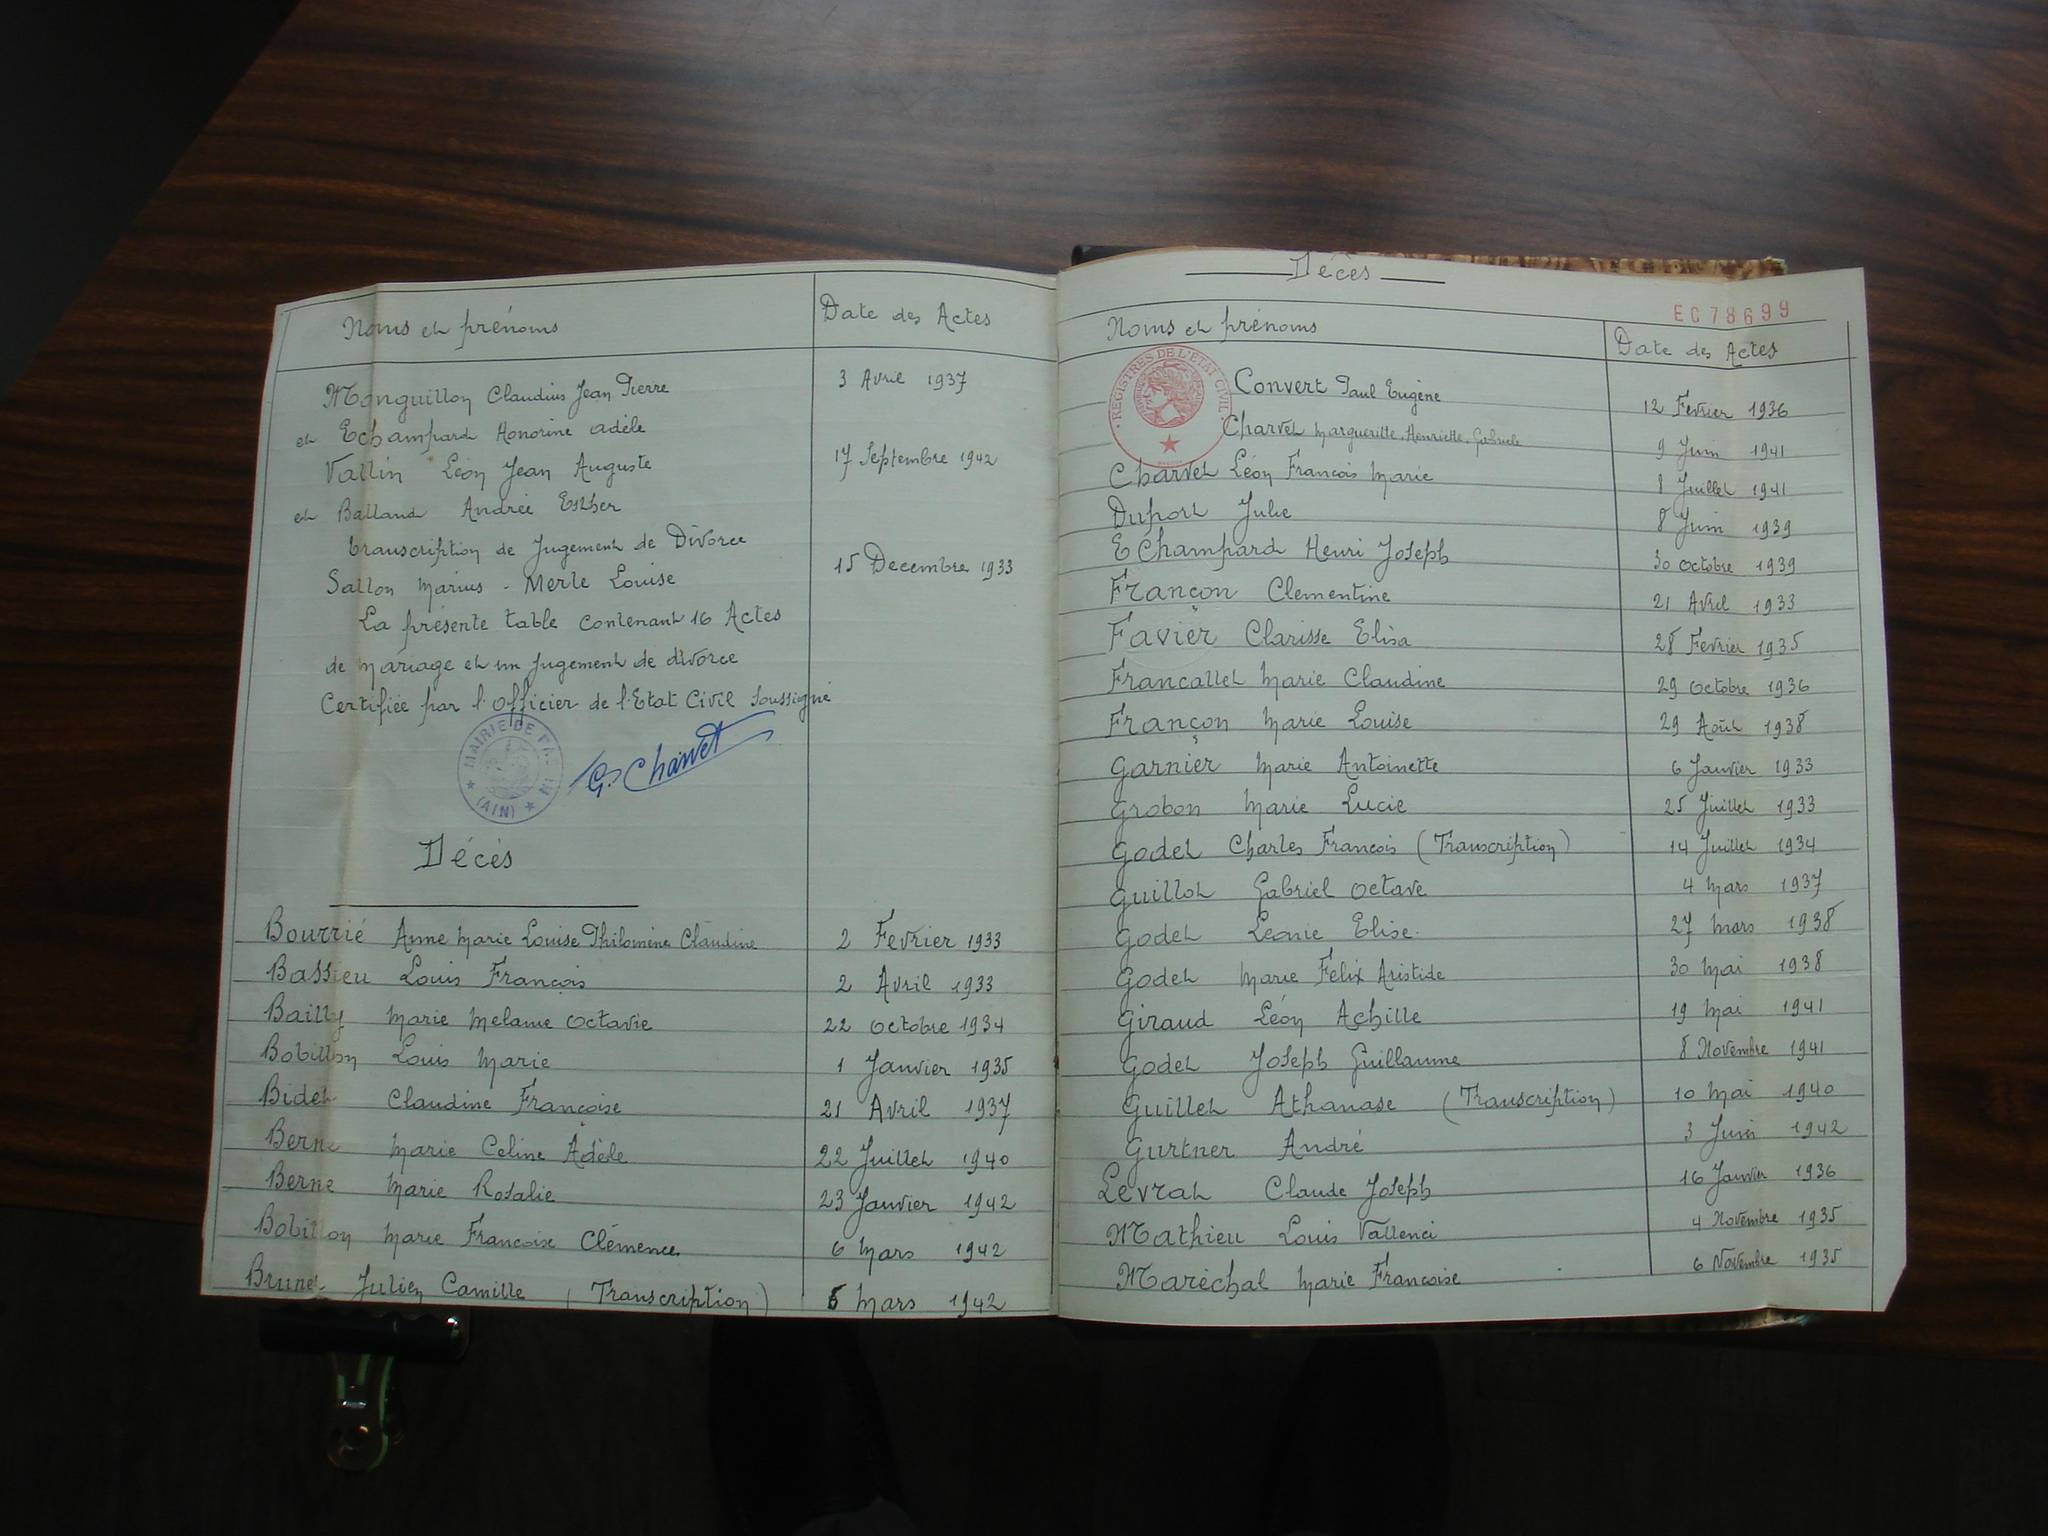 Noms et prénoms Date des Actes
Monguillon Claudius Jean Pierre 3 Avril 1937
et Echampard Honorine adèle
Vallin Léon Jean Auguste 17 Septembre 1942
et Balland Andrée Esther
transcription de Jugement de Divorce
Sallon Marius - Merle Louise 15 Decembre 1933
La présente table contenant 16 Actes
de Mariage et un Jugement de divorce
Certifiée par l'Officier de l'Etat Civil Soussigné
MAIRIE DE
(AIN)
G. Charvet
Décès
Bourrié Anne Marie Louise Philomène Claudine 2 Fevrier 1933
Bassieu Louis François 2 Avril 1933
Bailly Marie Melanie Octavie 22 octobre 1934
Bobillon Louis Marie 1 Janvier 1935
Bidet Claudine Françoise 21 Avril 1937
Berne Marie Celine Adèle 22 Juillet 1940
Berne Marie Rosalie 23 Janvier 1942
Bobillon Marie Francoise Clémence 6 Mars 1942
Brunet Julien Camille (Transcription) 5 Mars 1942
Décès
EC78699
Noms et prénoms Date des Actes
REGISTRES DE L'ETAT CIVIL
Convert Paul Eugène 12 Fevrier 1936
Charvet Margueritte, Henriette, 9 Juin 1941
Charvet Léon François Marie 8 Juillet 1941
Duport Julie 8 Juin 1939
Echampard Henri Joseph 30 octobre 1939
Françon Clementine 21 Avril 1933
Favier Clarisse Elisa 28 Fevrier 1935
Francallet Marie Claudine 29 octobre 1936
Françon Marie Louise 29 Août 1938
Garnier Marie Antoinette 6 Janvier 1933
Grobon Marie Lucie 25 Juillet 1933
Godet Charles Francois (Transcription) 14 Juillet 1934
Guillot Gabriel Octave 4 Mars 1937
Godet Léonie Elise 27 Mars 1938
Godet Marie Felix Aristide 30 Mai 1938
Giraud Léon Achille 19 Mai 1941
Godet Joseph Guillaume 8 Novembre 1941
Guillet Athanase (Transcription) 10 Mai 1940
Gurtner André 3 Juin 1942
Levrat Claude Joseph 16 Janvier 1936
Mathieu Louis 4 Novembre 1935
Maréchal Marie Francoise 6 Novembre 1935